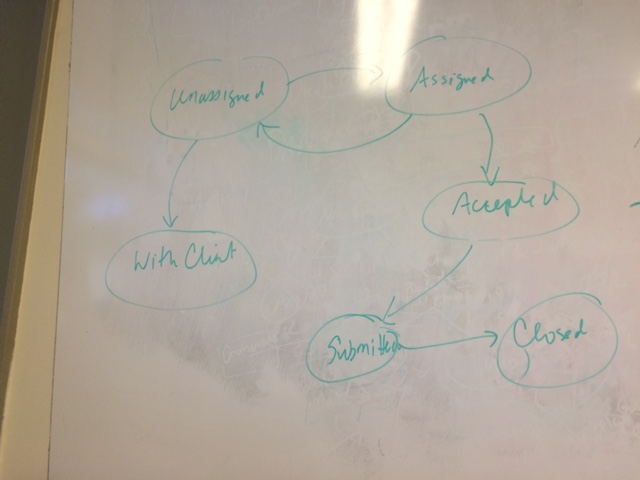 Unassigned
Assigned
Accepted
With Clint
Submitted
Closed